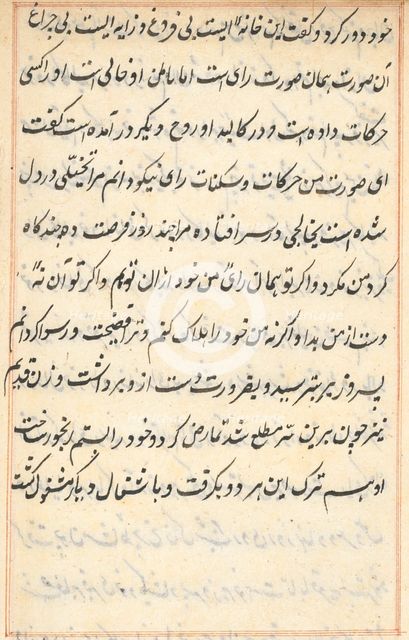 خود دور کرد و گفت این خانهٔ ایست بی فروغ و زایه ایست بی چراغ
آن صورت همان صورت رای است اما باطن او خالی است او را کسی
حرکات داده است و در کالبد او روح دیگر در آمده است گفت
ای صورت من حرکات و سکنات رای نیکو دانم مرا تخیلی در دل
شده است و خلجانی در سر افتاده مرا چند روز فرصت ده چند گاه
گرد من مگرد و اگر تو همان رای من خود از آن توایم و اگر تو آن نهٔ
دست از من بدار و اگر نه من خود را هلاک کنم و ترا فضیحت و رسوا گردانم
پسر وزیر بترسید و بضرورت دست از و برداشت و زن قدیم
نیز چون برین سر مطلع شد تمارض کرد و خود را بستم رنجور ساخت
او هم ترک این هر دو بگرفت و باشتغال دیگر مشغول گشت